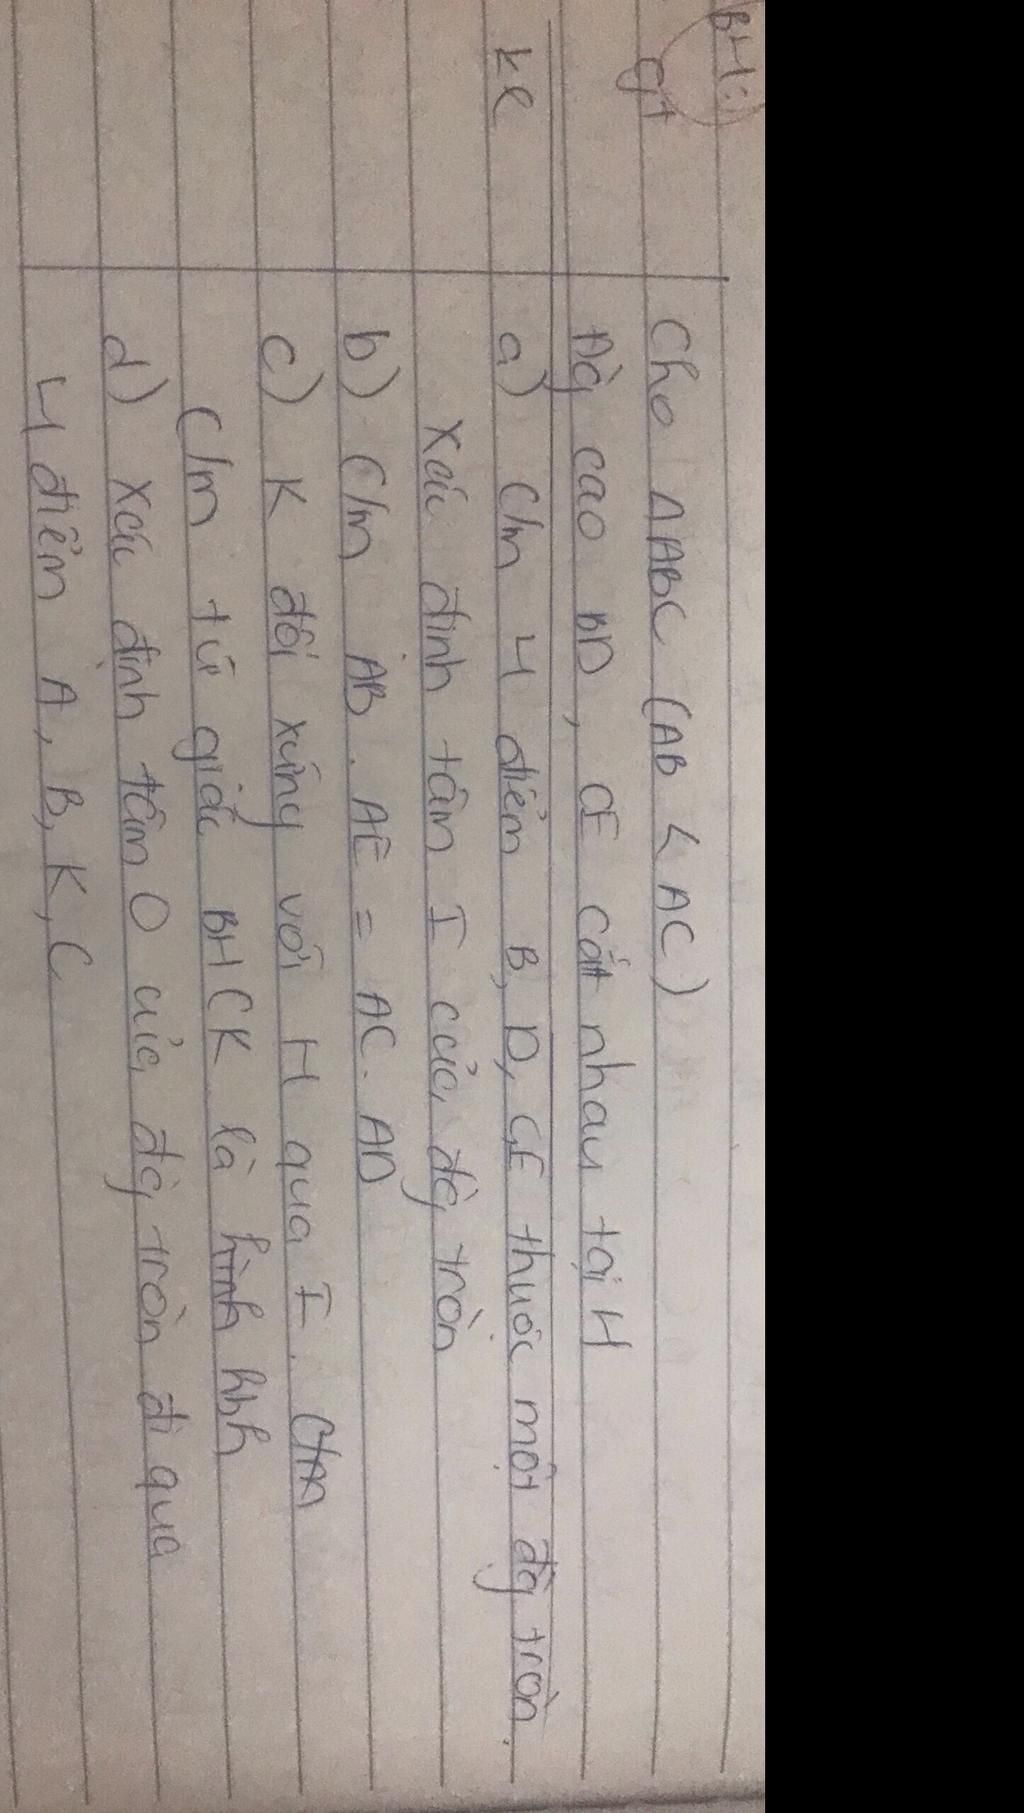 BH:
GT
Cho ΔABC (AB < AC)
Đg cao BD, CE cắt nhau tại H
KL
a) C/m 4 điểm B, D, C, E thuộc một đg tròn.
Xác định tâm I của đg tròn
b) C/m AB . AE = AC . AD
c) K đối xứng với H qua I.
C/m tứ giác BHCK là hình hbh
d) Xác định tâm O của đg tròn đi qua
4 điểm A, B, K, C